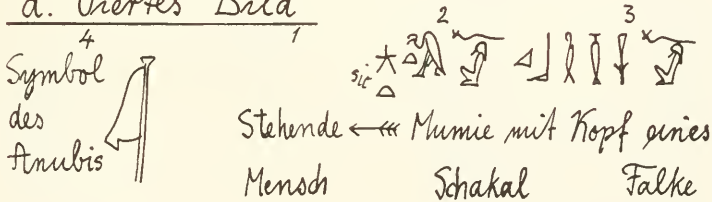 d. Viertes Bild
4 1 2 3
sic
Symbol
des
Anubis
Stehende Mumie mit Kopf eines
Mensch Schakal Falke